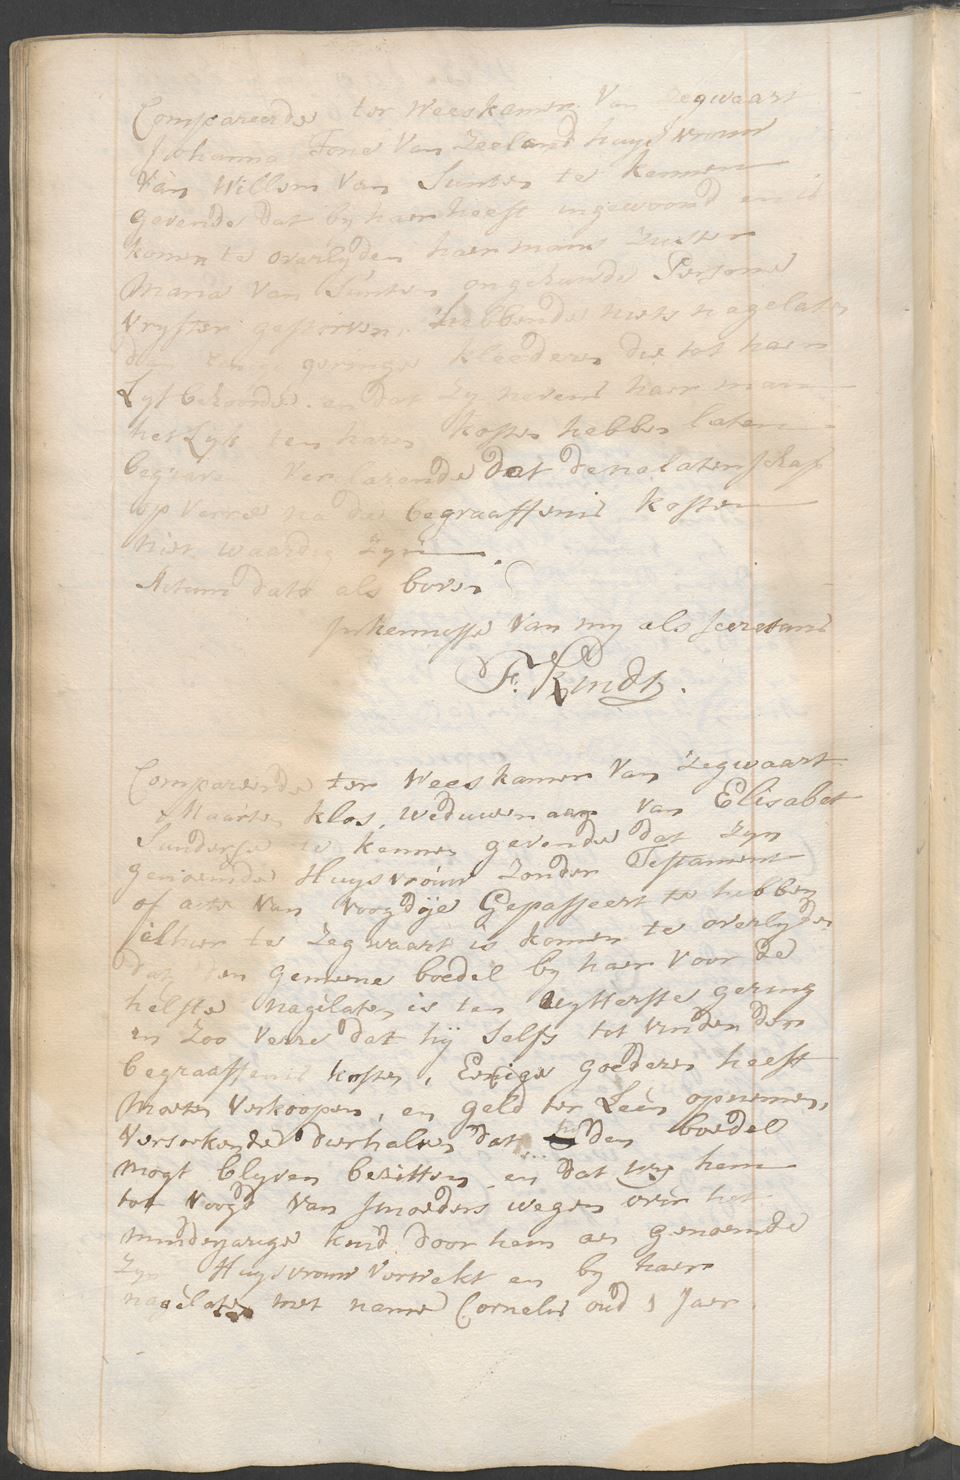 Compareerde ter Weeskamer Van Zegwaart
Johanna Fone Van Zeeland huysvrouw
Van Willem Van Sunten te kennen
gevende dat by haer heeft ingewoond en is
komen te overlyden haer mans zuster
Maria Van Sunten ongehuwde Persone
Vryster gestorven, hebbende niets nagelaten
dan eenige geringe kleederen die tot haer
Lyf behoorde. en dat zy nevens haer man
het Lyk ten haren kosten hebben laten
begraven Verclarende dat de nalatenschap
op verre na de begraaffenis kosten
niet waardig zyn
Actum dato als boven
In kennisse Van my als secretaris
F. Kindt.
Compareerde ter Weeskamer Van Zegwaart
Maarten klos, weduwenaar van Elisabet
Sunderse te kennen gevende dat zyn
genoemde Huysvrouw zonder Testament
of acte van voogdije Gepasseert te hebben
alhier te Zegwaart is komen te overlyden
dat den gemene boedel by haer Voor de
helfte nagelaten is ten uytterste gering
en zoo verre dat hy selfs tot vinden der
begraaffenis kosten, Eenige goederen heeft
moeten verkoopen, en geld ter Leen opnemen,
versoekende derhalven dat den boedel
mogt blyven besitten en dat wy hem
tot voogd van smoeders wegen over het
minderjarige kind door hem aen genoemde
Zyn Huysvrouw Verwekt en by haer
nagelaten met name Cornelis oud 1 Jaer.